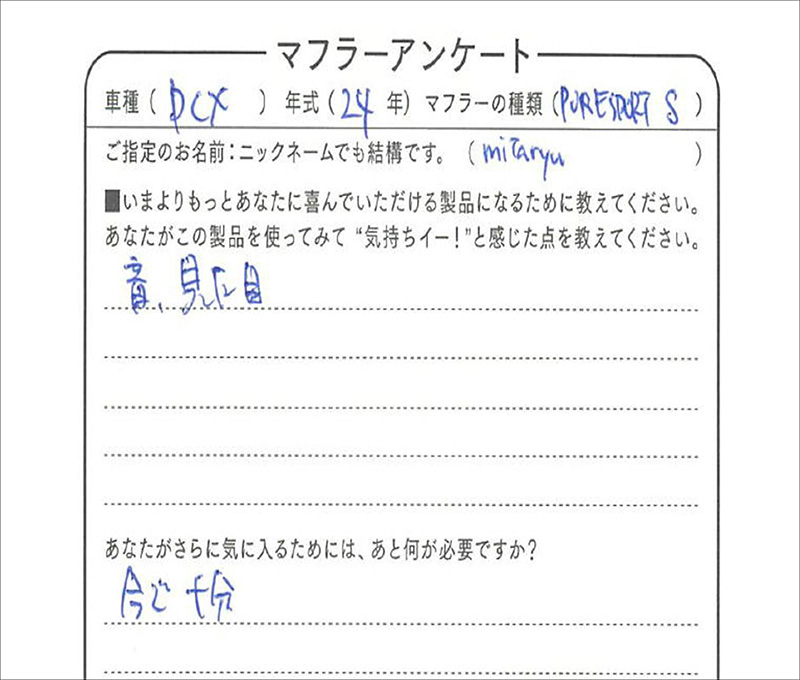 マフラーアンケート
車種（DCX）年式（24年）マフラーの種類（PURESPORT S）
ご指定のお名前：ニックネームでも結構です。（mitaryu）
■いまよりもっとあなたに喜んでいただける製品になるために教えてください。
あなたがこの製品を使ってみて“気持ちイー！”と感じた点を教えてください。
音、見た目
あなたがさらに気に入るためには、あと何が必要ですか？
今で十分